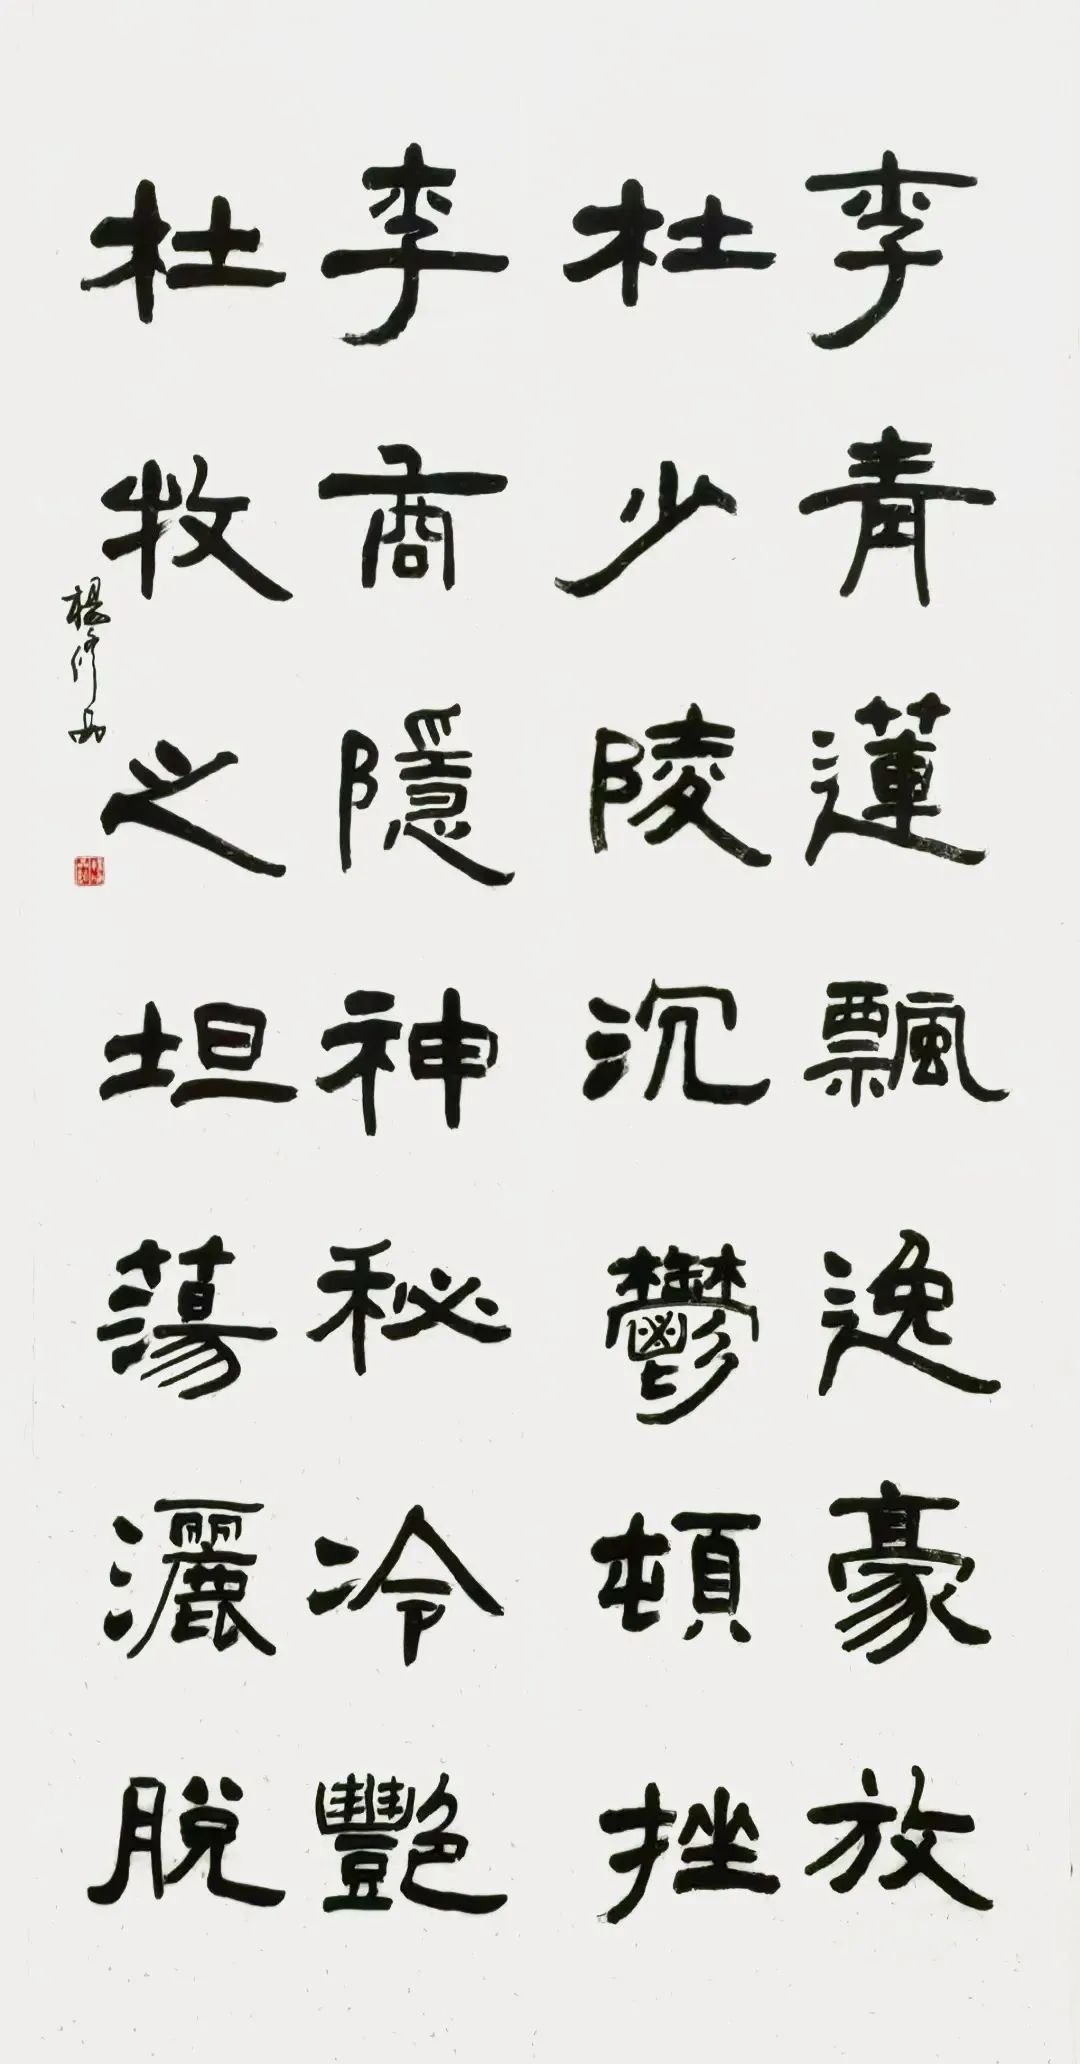 李青蓮飄逸豪放
杜少陵沉鬱頓挫
李商隱神秘冷艷
杜牧之坦蕩灑脫
楊修品